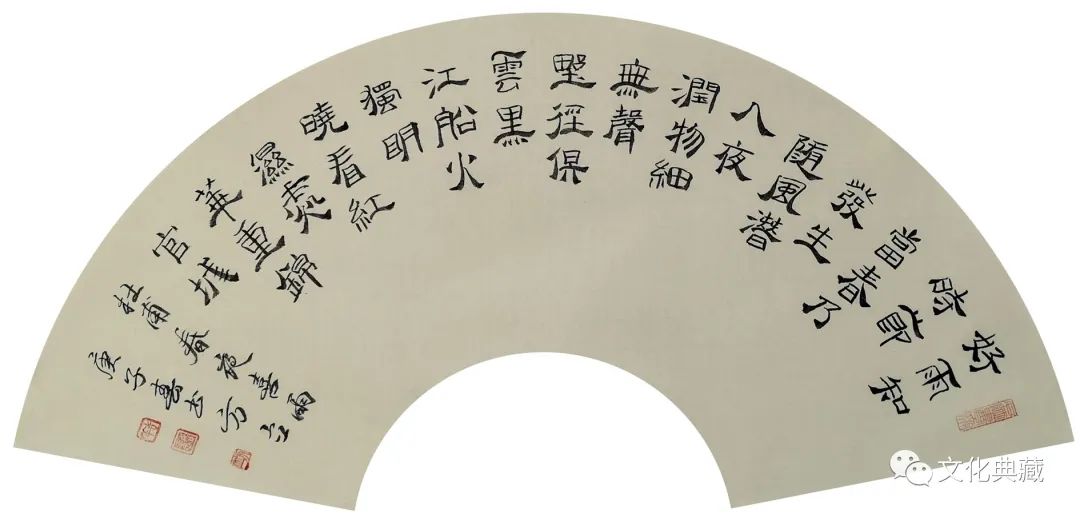 好雨知
時節
當春乃
發生
随風潛
入夜
潤物細
無聲
墅徑俱
雲黑
江船火
獨明
曉看紅
濕處
華重錦
官城
杜甫春夜喜雨
庚子
文化典藏